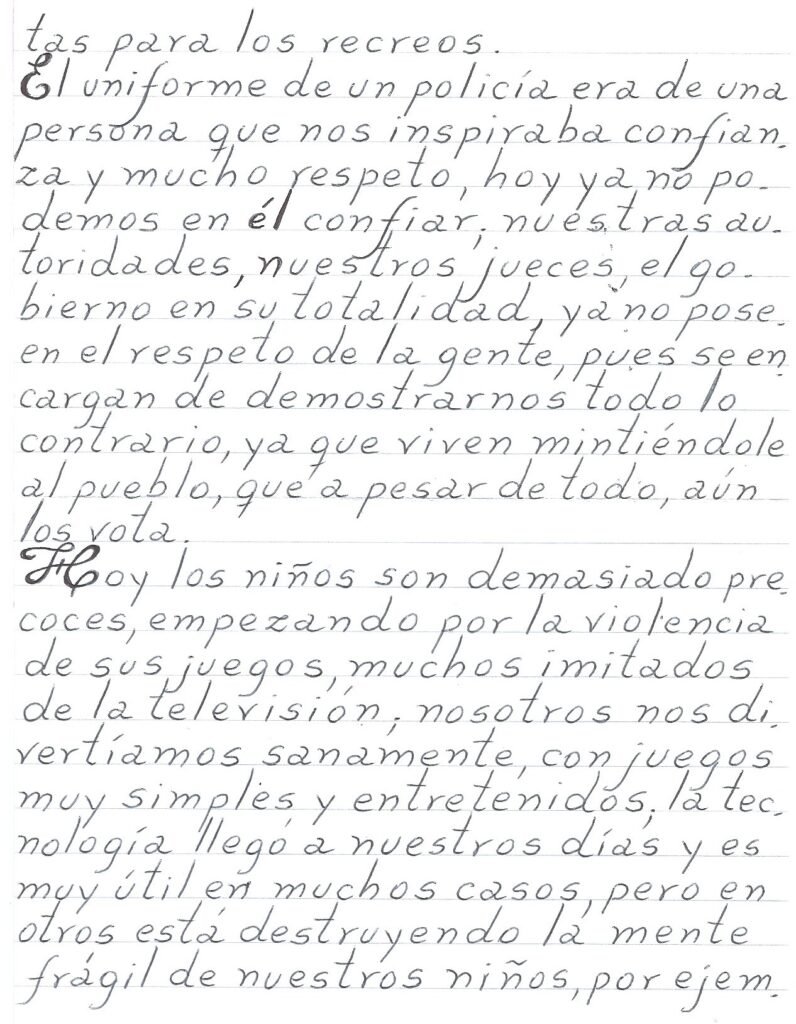 tas para los recreos.
El uniforme de un policía era de una
persona que nos inspiraba confian-
za y mucho respeto, hoy ya no po-
demos en él confiar; nuestras au-
toridades, nuestros jueces, el go-
bierno en su totalidad, ya no pose-
en el respeto de la gente, pues se en-
cargan de demostrarnos todo lo
contrario, ya que viven mintiéndole
al pueblo, que a pesar de todo, aún
los vota.
Hoy los niños son demasiado pre-
coces, empezando por la violencia
de sus juegos, muchos imitados
de la televisión; nosotros nos di-
vertíamos sanamente, con juegos
muy simples y entretenidos; la tec-
nología llegó a nuestros días y es
muy útil en muchos casos, pero en
otros está destruyendo la mente
frágil de nuestros niños, por ejem-